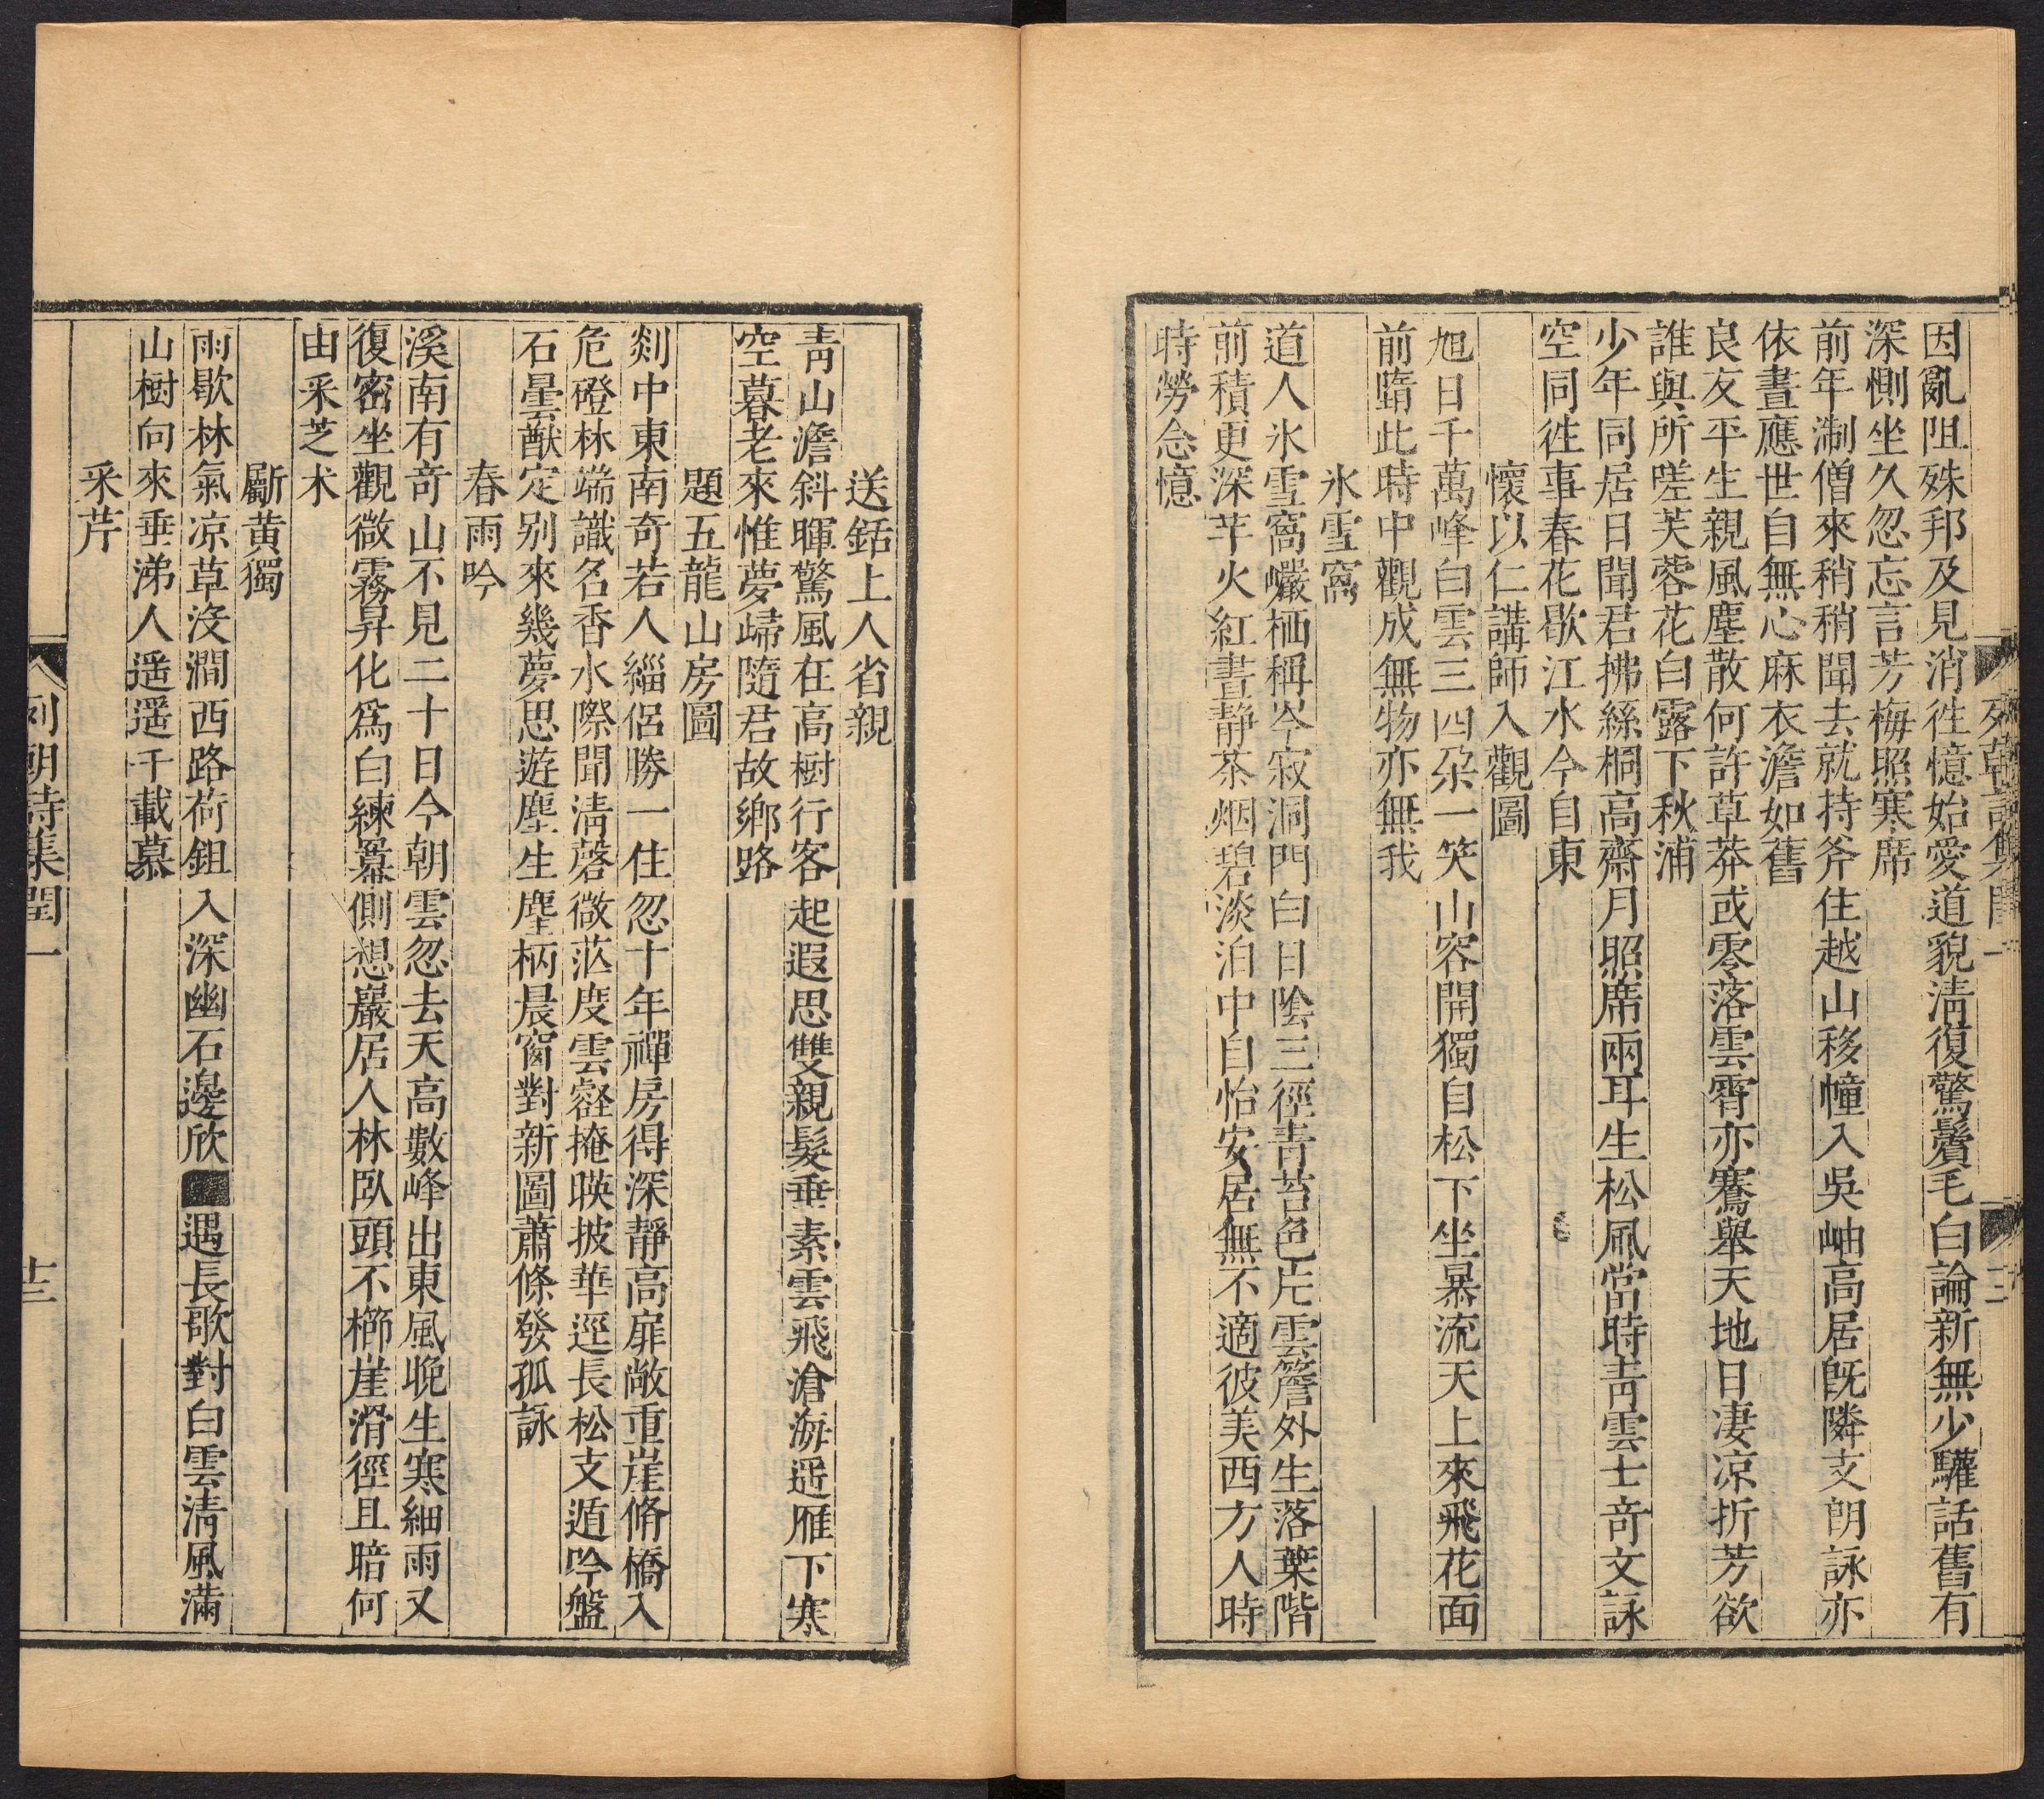 因亂阻殊邦及見消徃憶始愛道貌淸復驚鬢毛白論新無少驩話舊有
深惻坐久忽忘言芳梅照寒席
前年淛僧來稍稍聞去就持斧住越山移幢入吳岫高居旣隣支朗詠亦
依晝應世自無心麻衣澹如舊
良友平生親風塵散何許草莽或零落雲霄亦騫舉天地日凄凉折芳欲
誰與所嗟芙蓉花白露下秋浦
少年同居日聞君拂絲桐高齋月照席兩耳生松風當時靑雲士奇文詠
空同徃事春花歇江水今自東
懷以仁講師入觀圖
旭日千萬峰白雲三四朶一笑山容開獨自松下坐暴流天上來飛花面
前墮此時中觀成無物亦無我
氷雪窩
道人氷雪窩巗栖稱岑寂洞門白日陰三徑靑苔色片雲簷外生落葉階
前積更深芋火紅晝靜茶烟碧淡泊中自怡安居無不適彼美西方人時
時勞念憶
送銛上人省親
靑山澹斜暉驚風在高樹行客起遐思雙親髮垂素雲飛滄海遥雁下寒
空暮老來惟夢歸隨君故鄉路
題五龍山房圖
剡中東南奇若人緇侶勝一住忽十年禪房得深靜高扉敞重崖脩橋入
危磴林端識名香水際聞淸磬微茫度雲壑掩暎披華逕長松支遁吟盤
石曇猷定别來幾夢思遊塵生麈柄晨窗對新圖蕭條發孤詠
春雨吟
溪南有奇山不見二十日今朝雲忽去天高數峰出東風晚生寒細雨又
復密坐觀微霧昇化爲白練羃側想巖居人林臥頭不櫛崖滑徑且暗何
由采芝术
斸黄獨
雨歇林氣凉草沒澗西路荷鉏入深幽石邊欣■遇長歌對白雲淸風滿
山樹向來垂涕人遥遥千載慕
采芹
列朝詩集閏一
十三